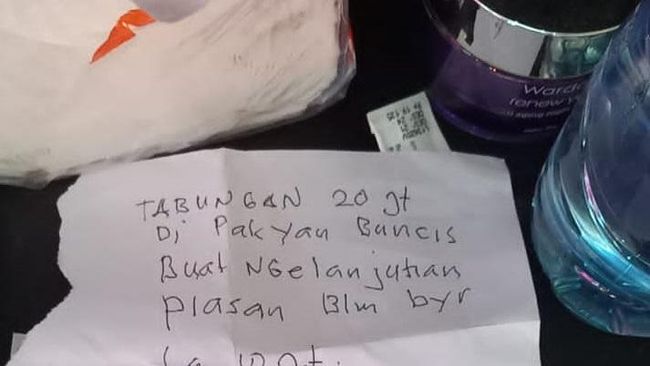 Warda
renew yo
TABUNGAN 20 jt
Di Pak Yan Buncis
Buat NGelanjutian
Plasan Blm byr